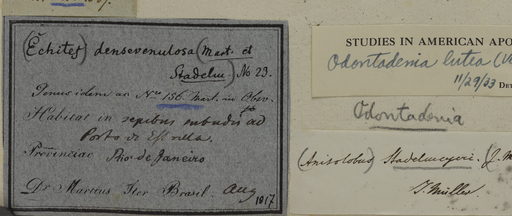 (Echites) densevenulosa (Mart. et
Stadelm.) No 23.
Genus idem ac No 156. Mart. in Obser.
Habitat in sepibus ad
Porto da Estrella.
Provinciae Rio de Janeiro
Dr. Martius Iter Brasil. Aug
1817.
STUDIES IN AMERICAN APO
Odontadenia lutea (Ve
11/29/33 DET
Odontadenia
(Anisolobus) Stadelmeyeri. (J. M
J. Müller